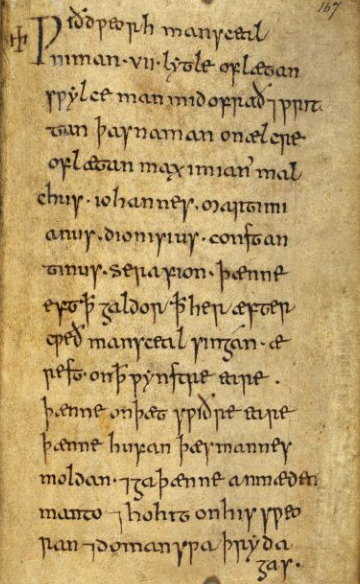 167
✠ Ƿið ðƿeorh man sceal
niman · vii · lytle oflætan
sƿylce man mid ofrað ⁊ ƿrit
tan þas naman on ælcre
oflætan maximian' mal
chus · iohannes · martimi
anus · dionisius · constan
tinus · serafion · þænne
eft ꝥ galdor ꝥ her æfter
cƿeð man sceal singan · æ
rest · on ꝥ ƿynstre eare .
þænne on þæt sƿiðre eare
þænne bufan þæs mannes
moldan · ⁊ ga þænne an mæden
man to ⁊ ho hit on his sƿeo
ran ⁊ do man sƿa þry da
gas ·